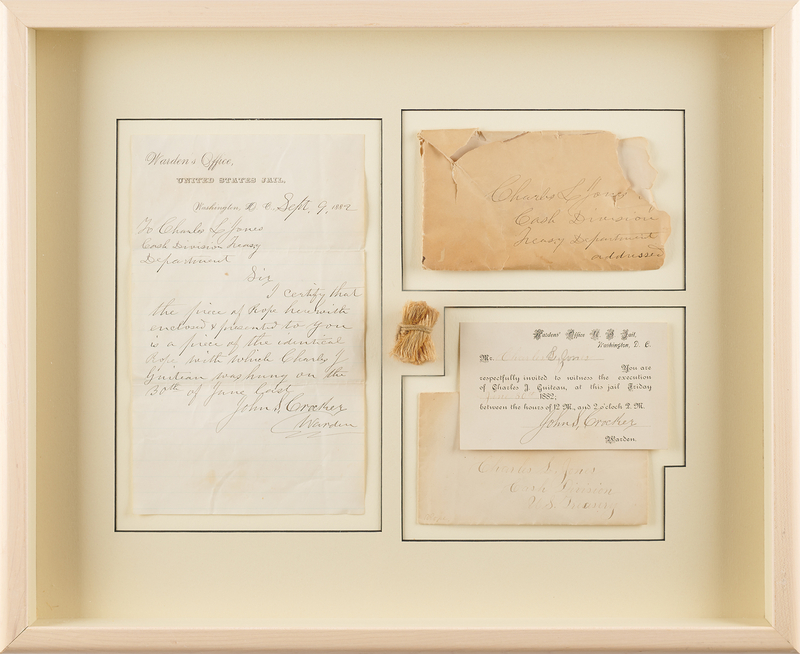 Warden's Office,
UNITED STATES JAIL,
Washington, D. C. Sept, 9, 1882
To Charles L Jones
Cash Division Treasy
Department
Sir
I certify that
the piece of Rope herewith
enclosed & presented to you
is a piece of the identical
Rope with which Charles J
Guiteau was hung on the
30th of June last
John S, Crocker
Warden
Charles L Jones
Cash Division
Treasy Department
addressed
Wardens' Office U. S. Jail,
Washington, D. C.
Mr. Charles L. Jones
You are
respectfully invited to witness the execution
of Charles J. Guiteau, at this jail Friday
1882,
between the hours of 12 M., and 2 o'clock P. M.
John S, Crocker
Warden.
Charles L Jones
Cash Division
U. S. Treasury